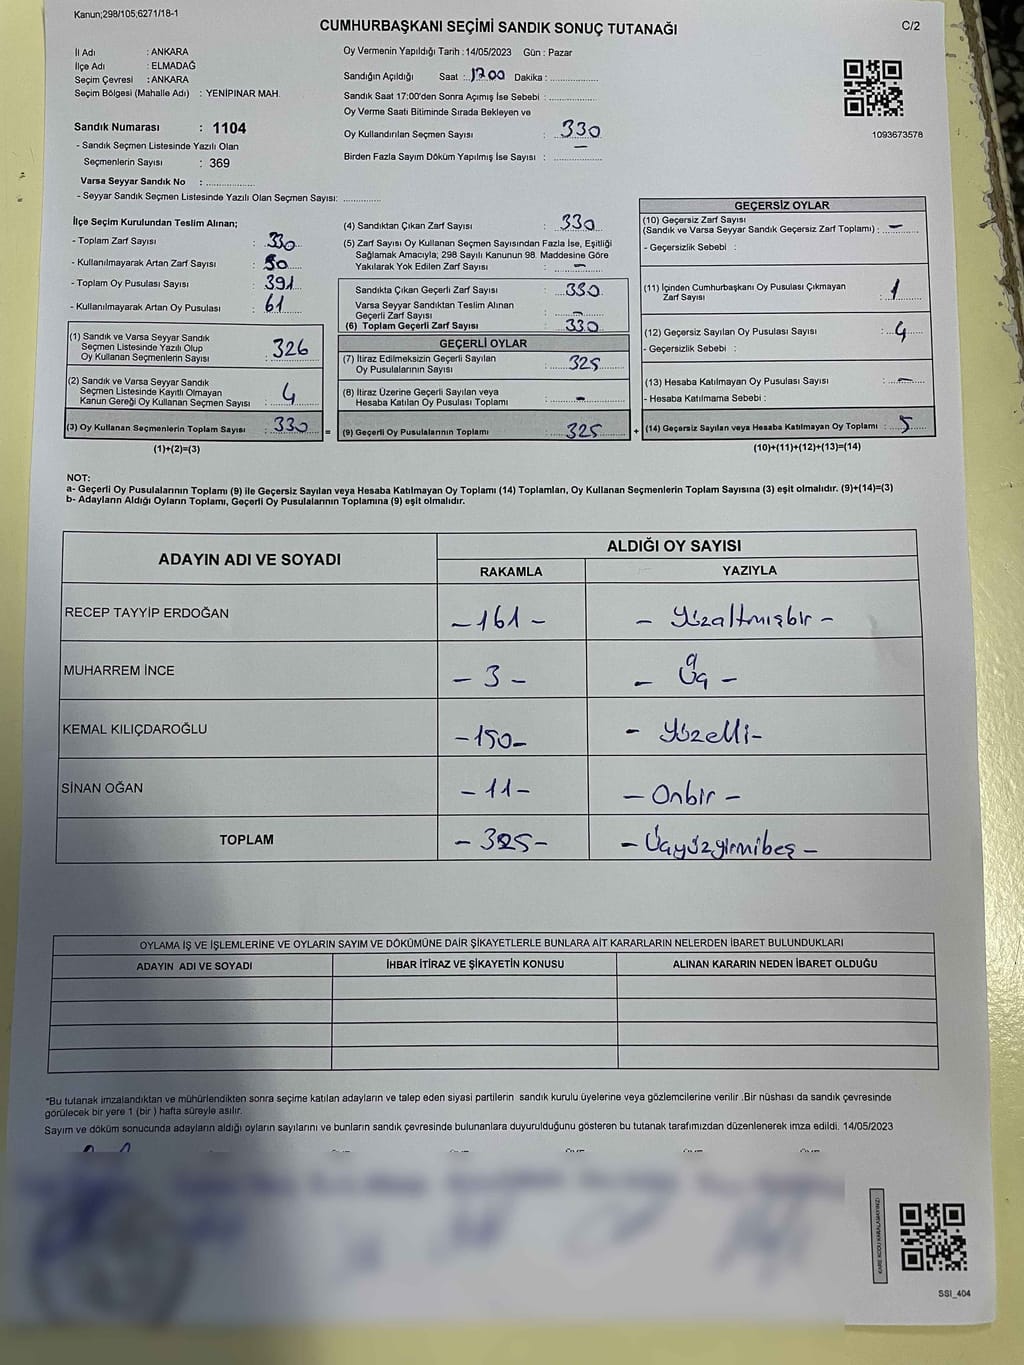 Kanun;298/105;6271/18-1
CUMHURBAŞKANI SEÇİMİ SANDIK SONUÇ TUTANAĞI
C/2
İl Adı : ANKARA
İlçe Adı : ELMADAĞ
Seçim Çevresi : ANKARA
Seçim Bölgesi (Mahalle Adı) : YENİPINAR MAH.
Sandık Numarası : 1104
- Sandık Seçmen Listesinde Yazılı Olan
Seçmenlerin Sayısı : 369
Varsa Seyyar Sandık No :
- Seyyar Sandık Seçmen Listesinde Yazılı Olan Seçmen Sayısı:
Oy Vermenin Yapıldığı Tarih :14/05/2023 Gün : Pazar
Sandığın Açıldığı Saat : 1700 Dakika :
Sandık Saat 17:00'den Sonra Açımış İse Sebebi :
Oy Verme Saati Bitiminde Sırada Bekleyen ve
Oy Kullandırılan Seçmen Sayısı : 330
Birden Fazla Sayım Döküm Yapılmış İse Sayısı : –
1093673578
İlçe Seçim Kurulundan Teslim Alınan;
- Toplam Zarf Sayısı : 330
- Kullanılmayarak Artan Zarf Sayısı : 50
- Toplam Oy Pusulası Sayısı : 391
- Kullanılmayarak Artan Oy Pusulası : 61
(1) Sandık ve Varsa Seyyar Sandık
Seçmen Listesinde Yazılı Olup
Oy Kullanan Seçmenlerin Sayısı : 326
(2) Sandık ve Varsa Seyyar Sandık
Seçmen Listesinde Kayıtlı Olmayan
Kanun Gereği Oy Kullanan Seçmen Sayısı : 4
(3) Oy Kullanan Seçmenlerin Toplam Sayısı : 330
(1)+(2)=(3)
(4) Sandıktan Çıkan Zarf Sayısı : 330
(5) Zarf Sayısı Oy Kullanan Seçmen Sayısından Fazla İse, Eşitliği
Sağlamak Amacıyla; 298 Sayılı Kanunun 98. Maddesine Göre
Yakılarak Yok Edilen Zarf Sayısı : –
Sandıkta Çıkan Geçerli Zarf Sayısı : 330
Varsa Seyyar Sandıktan Teslim Alınan
Geçerli Zarf Sayısı : –
(6) Toplam Geçerli Zarf Sayısı : 330
GEÇERLİ OYLAR
(7) İtiraz Edilmeksizin Geçerli Sayılan
Oy Pusulalarının Sayısı : 325
(8) İtiraz Üzerine Geçerli Sayılan veya
Hesaba Katılan Oy Pusulası Toplamı : -
= (9) Geçerli Oy Pusulalarının Toplamı : 325
GEÇERSİZ OYLAR
(10) Geçersiz Zarf Sayısı
(Sandık ve Varsa Seyyar Sandık Geçersiz Zarf Toplamı) : –
- Geçersizlik Sebebi :
(11) İçinden Cumhurbaşkanı Oy Pusulası Çıkmayan
Zarf Sayısı : 1
(12) Geçersiz Sayılan Oy Pusulası Sayısı : 4
- Geçersizlik Sebebi :
(13) Hesaba Katılmayan Oy Pusulası Sayısı : –
- Hesaba Katılmama Sebebi :
+ (14) Geçersiz Sayılan veya Hesaba Katılmayan Oy Toplamı : 5
(10)+(11)+(12)+(13)=(14)
NOT:
a- Geçerli Oy Pusulalarının Toplamı (9) ile Geçersiz Sayılan veya Hesaba Katılmayan Oy Toplamı (14) Toplamları, Oy Kullanan Seçmenlerin Toplam Sayısına (3) eşit olmalıdır. (9)+(14)=(3)
b- Adayların Aldığı Oyların Toplamı, Geçerli Oy Pusulalarının Toplamına (9) eşit olmalıdır.
ADAYIN ADI VE SOYADI
ALDIĞI OY SAYISI
RAKAMLA YAZIYLA
RECEP TAYYİP ERDOĞAN -161- - Yüzaltmışbir -
MUHARREM İNCE - 3 - - Üç -
KEMAL KILIÇDAROĞLU -150- - Yüzelli-
SİNAN OĞAN - 11- - Onbir -
TOPLAM - 325- - Üçyüzyirmibeş -
OYLAMA İŞ VE İŞLEMLERİNE VE OYLARIN SAYIM VE DÖKÜMÜNE DAİR ŞİKAYETLERLE BUNLARA AİT KARARLARIN NELERDEN İBARET BULUNDUKLARI
ADAYIN ADI VE SOYADI İHBAR İTİRAZ VE ŞİKAYETİN KONUSU ALINAN KARARIN NEDEN İBARET OLDUĞU
*Bu tutanak imzalandıktan ve mühürlendikten sonra seçime katılan adayların ve talep eden siyasi partilerin sandık kurulu üyelerine veya gözlemcilerine verilir .Bir nüshası da sandık çevresinde
görülecek bir yere 1 (bir ) hafta süreyle asılır.
Sayım ve döküm sonucunda adayların aldığı oyların sayılarını ve bunların sandık çevresinde bulunanlara duyurulduğunu gösteren bu tutanak tarafımızdan düzenlenerek imza edildi. 14/05/2023
KARE KODU KARALAMAYINIZ!
SSI_404